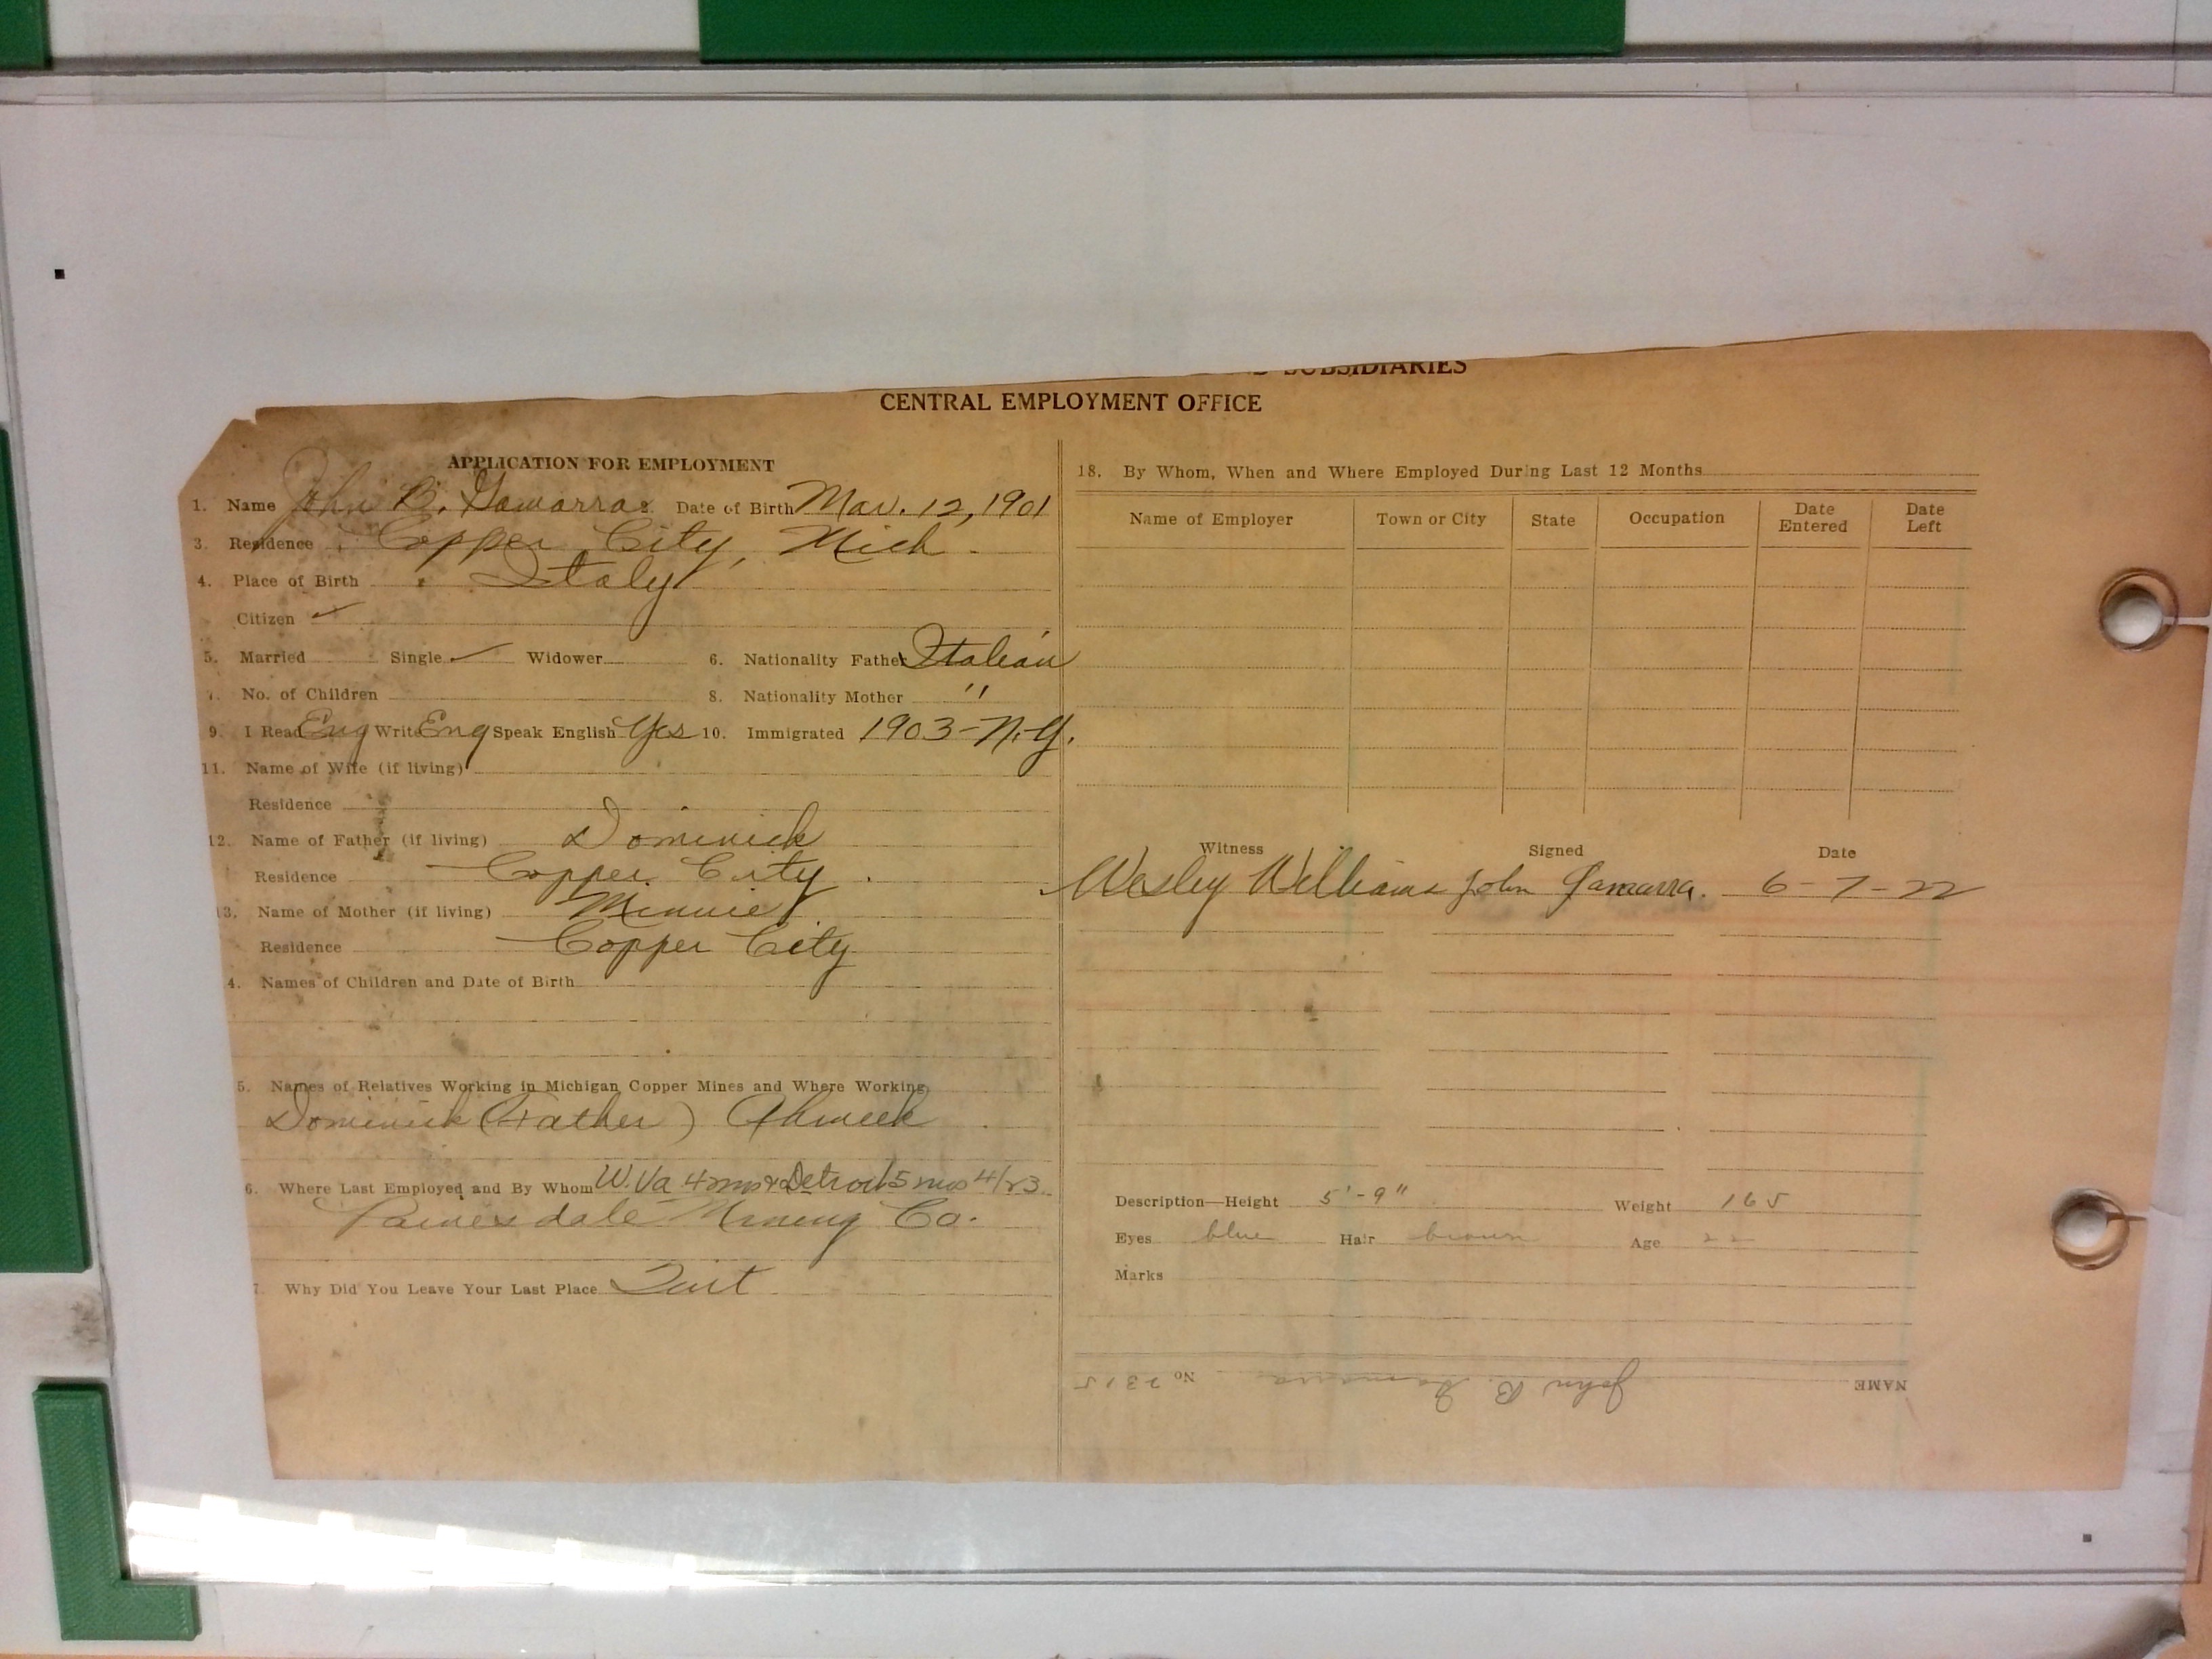 SUBSIDIARIES
CENTRAL EMPLOYMENT OFFICE
APPLICATION FOR EMPLOYMENT
1. Name John B. Gamarra 2. Date of Birth Mar. 12, 1901
3. Residence Copper City, Mich.
4. Place of Birth Italy
Citizen ✓
5. Married Single ✓ Widower 6. Nationality Father Italian
7. No. of Children 8. Nationality Mother "
9. I Read Eng Write Eng Speak English Yes 10. Immigrated 1903-N.Y.
11. Name of Wife (if living)
Residence
12. Name of Father (if living) Dominick
Residence Copper City.
13. Name of Mother (if living) Minnie
Residence Copper City
4. Names of Children and Date of Birth
5. Names of Relatives Working in Michigan Copper Mines and Where Working
Dominick (Father) Ahmeek
6. Where Last Employed and By Whom W.Va 4 mos & Detroit 5 mos 4/23
Painesdale Mining Co.
7. Why Did You Leave Your Last Place Quit
18. By Whom, When and Where Employed During Last 12 Months
Name of Employer Town or City State Occupation Date Entered Date Left
Witness Signed Date
Wesley Williams John Gamarra. 6-7-22
Description—Height 5'-9" Weight 165
Eyes blue Hair brown Age 22
Marks
NAME John B. Gamarra No 2315